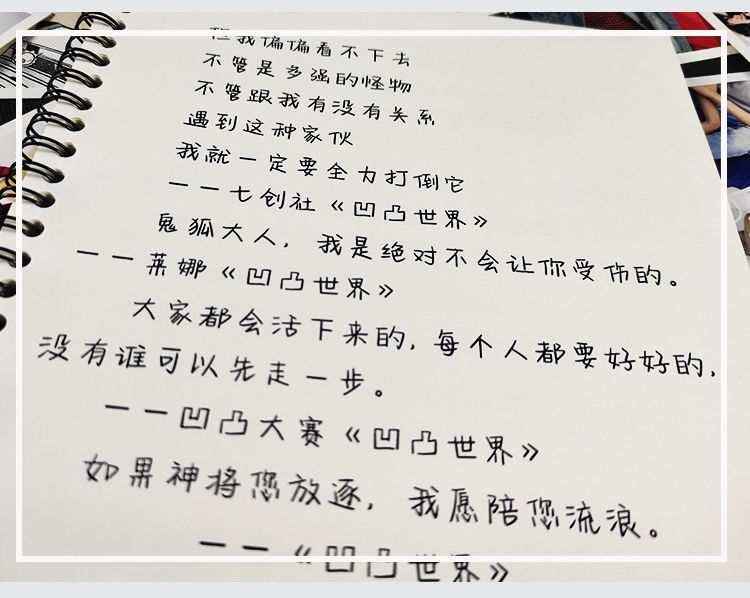 但我偏偏看不下去
不管是多强的怪物
不管跟我有没有关系
遇到这种家伙
我就一定要全力打倒它
——七创社《凹凸世界》
鬼狐大人，我是绝对不会让你受伤的。
——莱娜《凹凸世界》
大家都会活下来的，每个人都要好好的，
没有谁可以先走一步。
——凹凸大赛《凹凸世界》
如果神将您放逐，我愿陪您流浪。
——《凹凸世界》